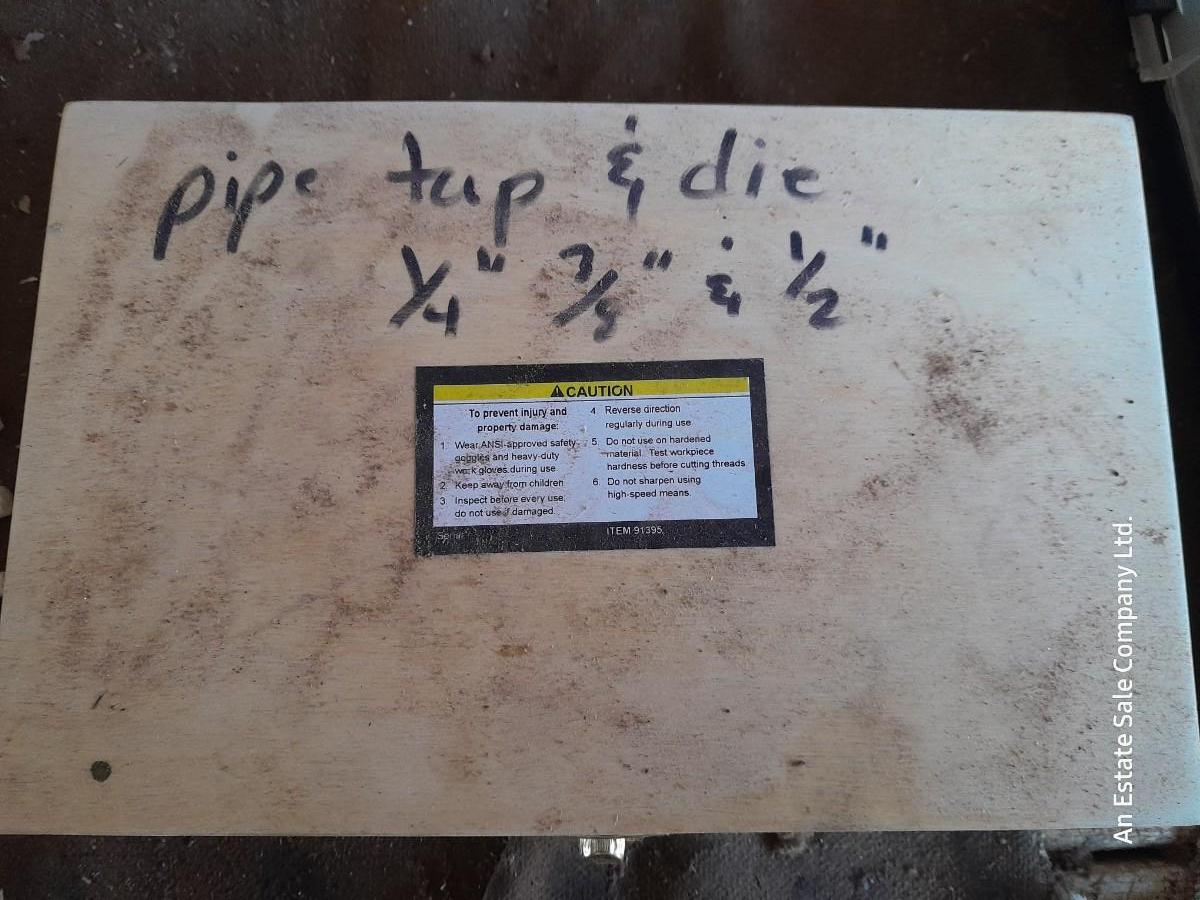 pipe tap & die
1/4" 3/8" & 1/2"
⚠CAUTION
To prevent injury and
property damage:
1. Wear ANSI-approved safety
goggles and heavy-duty
work gloves during use.
2. Keep away from children.
3. Inspect before every use;
do not use if damaged.
4. Reverse direction
regularly during use.
5. Do not use on hardened
material. Test workpiece
hardness before cutting threads.
6. Do not sharpen using
high-speed means.
ITEM 91395
An Estate Sale Company Ltd.